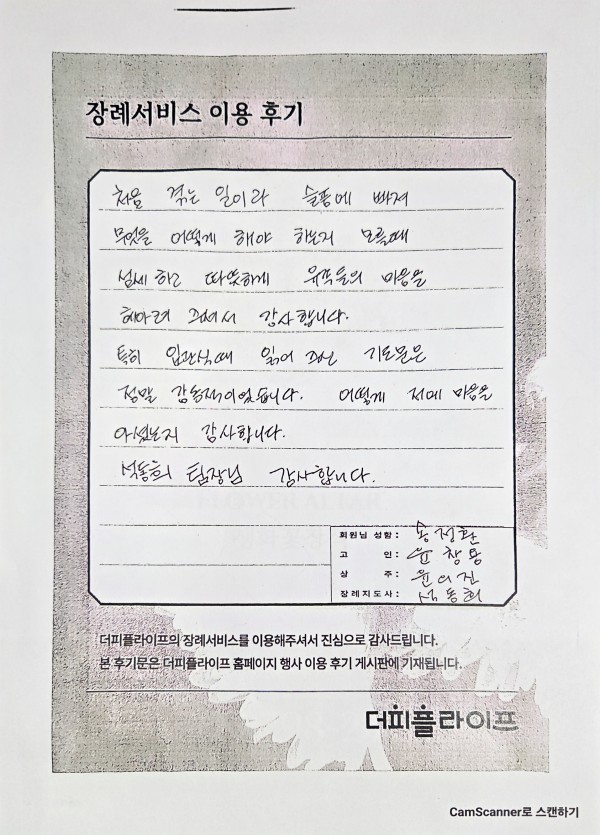 장례서비스 이용 후기
처음 겪는 일이라 슬픔에 빠져
무엇을 어떻게 해야 하는지 모를때
섬세 하고 따뜻하게 유족들의 마음을
헤아려 주셔서 감사합니다.
특히 입관식때 읽어 주신 기도문은
정말 감동적이었습니다. 어떻게 저에 마음을
아셨는지 감사합니다.
석동희 팀장님 감사합니다.
회원님 성함: 송정환
고 인: 윤창용
상 주: 윤여진
장례지도사: 석동희
더피플라이프의 장례서비스를 이용해주셔서 진심으로 감사드립니다.
본 후기문은 더피플라이프 홈페이지 행사 이용 후기 게시판에 기재됩니다.
더피플라이프
CamScanner로 스캔하기